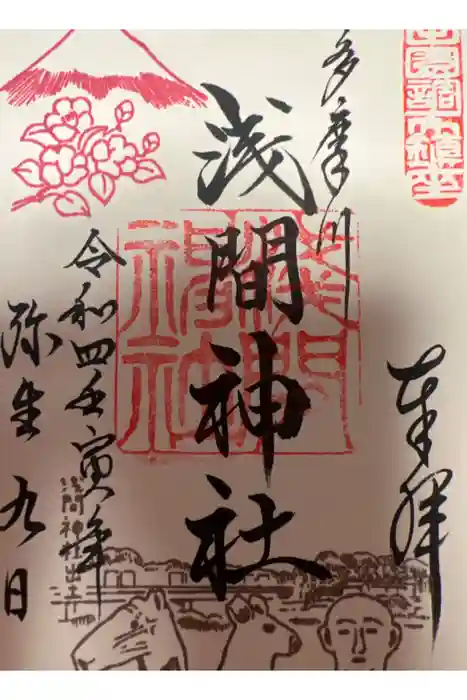 奉拝
多摩川
浅間神社
令和四壬寅年
弥生九日
浅間神社
浅間神社出土